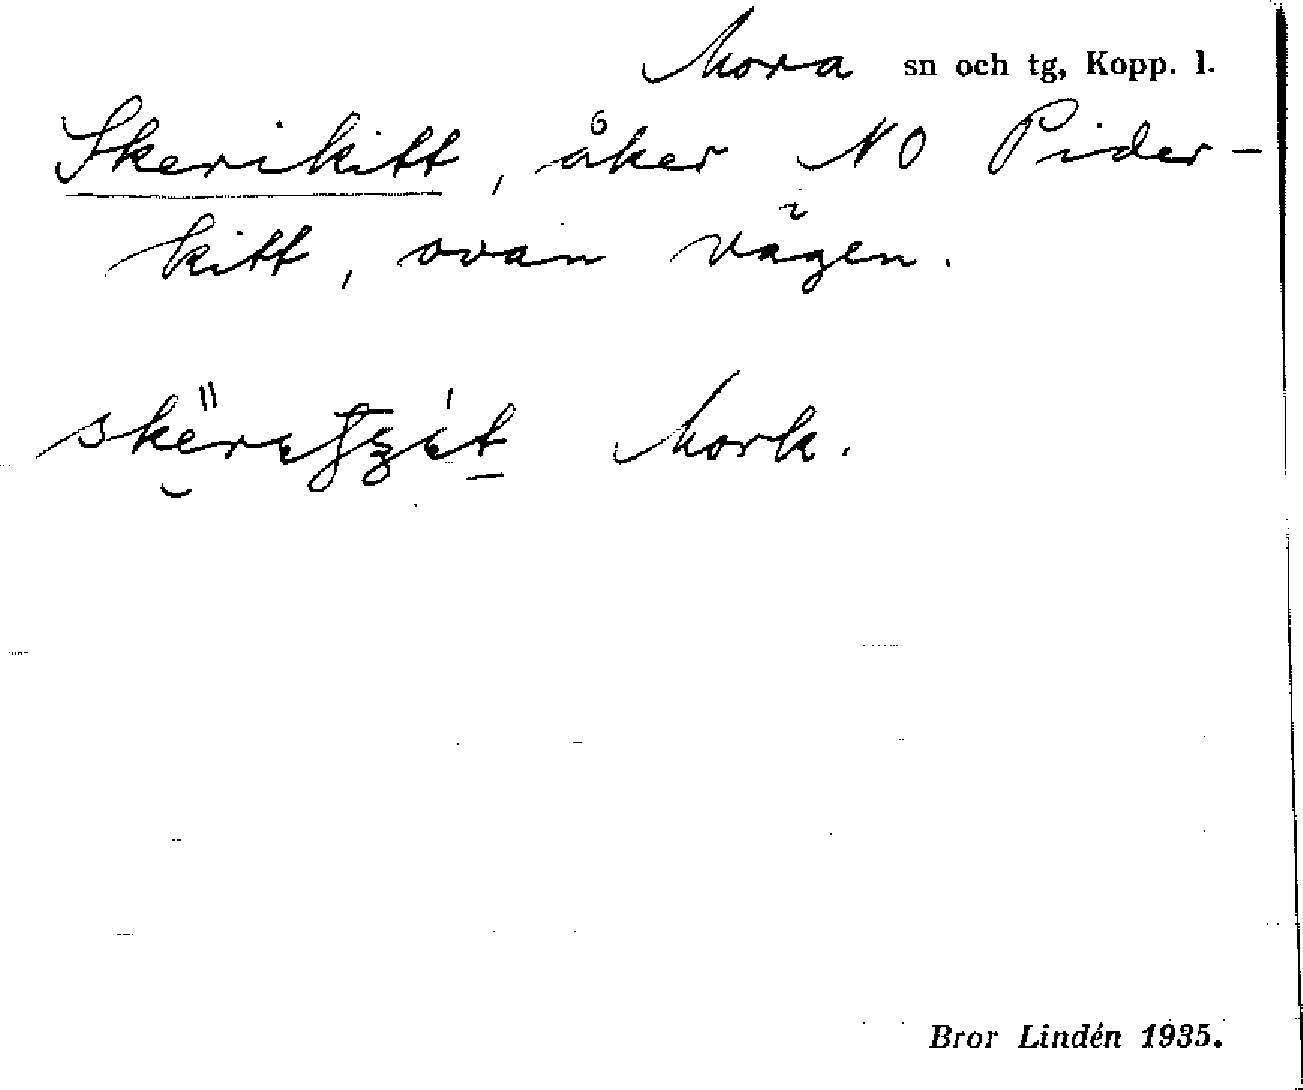 Mora sn och tg, Kopp. l.
Skerikitt, åker NO Pider-
kitt, ovan vägen.
Mork.
Bror Lindén 1935.